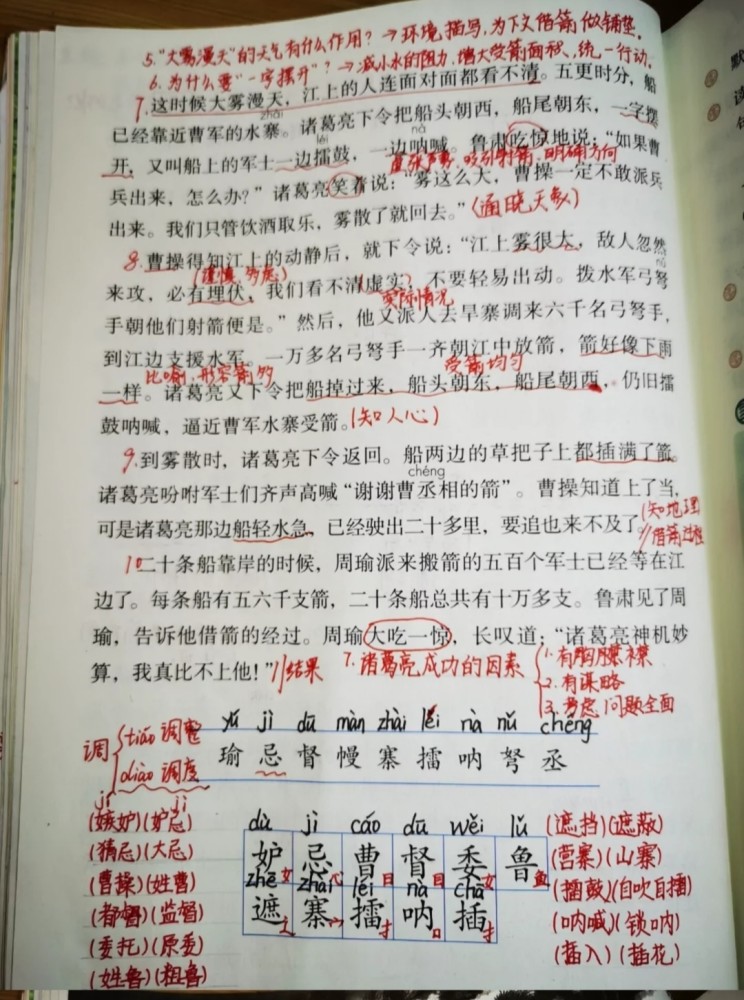 5."大雾漫天"的天气有什么作用?→环境描写,为下文借箭做铺垫。
6.为什么要"一字摆开"?→减小水的阻力,增大受箭面积,统一行动。
7.这时候大雾漫天,江上的人连面对面都看不清。五更时分,船
zhài
已经靠近曹军的水寨。诸葛亮下令把船头朝西,船尾朝东,一字摆
léi nà
开,又叫船上的军士一边擂鼓,一边呐喊。鲁肃吃惊地说:"如果曹
虚张声势,吸引射箭,明确方向
兵出来,怎么办?"诸葛亮笑着说:"雾这么大,曹操一定不敢派兵
出来。我们只管饮酒取乐,雾散了就回去。"(通晓天象)
8.曹操得知江上的动静后,就下令说:"江上雾很大,敌人忽然
(谨慎、多疑)
nǔ
来攻,必有埋伏,我们看不清虚实,不要轻易出动。拨水军弓弩
实际情况
手朝他们射箭便是。"然后,他又派人去旱寨调来六千名弓弩手,
到江边支援水军。一万多名弓弩手一齐朝江中放箭,箭好像下雨
比喻,形容箭多 受箭均匀
一样。诸葛亮又下令把船掉过来,船头朝东,船尾朝西,仍旧擂
鼓呐喊,逼近曹军水寨受箭。(知人心)
9.到雾散时,诸葛亮下令返回。船两边的草把子上都插满了箭。
chéng
诸葛亮吩咐军士们齐声高喊"谢谢曹丞相的箭"。曹操知道上了当,
可是诸葛亮那边船轻水急,已经驶出二十多里,要追也来不及了。
(知地理
//借箭过程
10二十条船靠岸的时候,周瑜派来搬箭的五百个军士已经等在江
边了。每条船有五六千支箭,二十条船总共有十万多支。鲁肃见了周
瑜,告诉他借箭的经过。周瑜大吃一惊,长叹道:"诸葛亮神机妙
算,我真比不上他!"//结果
7.诸葛亮成功的因素
1.有胸襟
2.有谋略
3.考虑问题全面
调
tiáo 调整
diào 调度
yú jì dū màn zhài léi nà nǔ chéng
瑜 忌 督 幔 寨 擂 呐 弩 丞
jí jì
(嫉妒)(妒忌)
(猜忌)(大忌)
(曹操)(姓曹)
(都督)(监督)
(委托)(原委)
(姓鲁)(粗鲁)
dù jì cáo dū wěi lǔ
妒 忌 曹 督 委 鲁
女 心 日 目 女 鱼
zhē zhài léi nà chā
遮 寨 擂 呐 插
辶 宀 扌 口 扌
(遮挡)(遮蔽)
(营寨)(山寨)
(擂鼓)(自吹自擂)
(呐喊)(锁呐)
(插入)(插花)